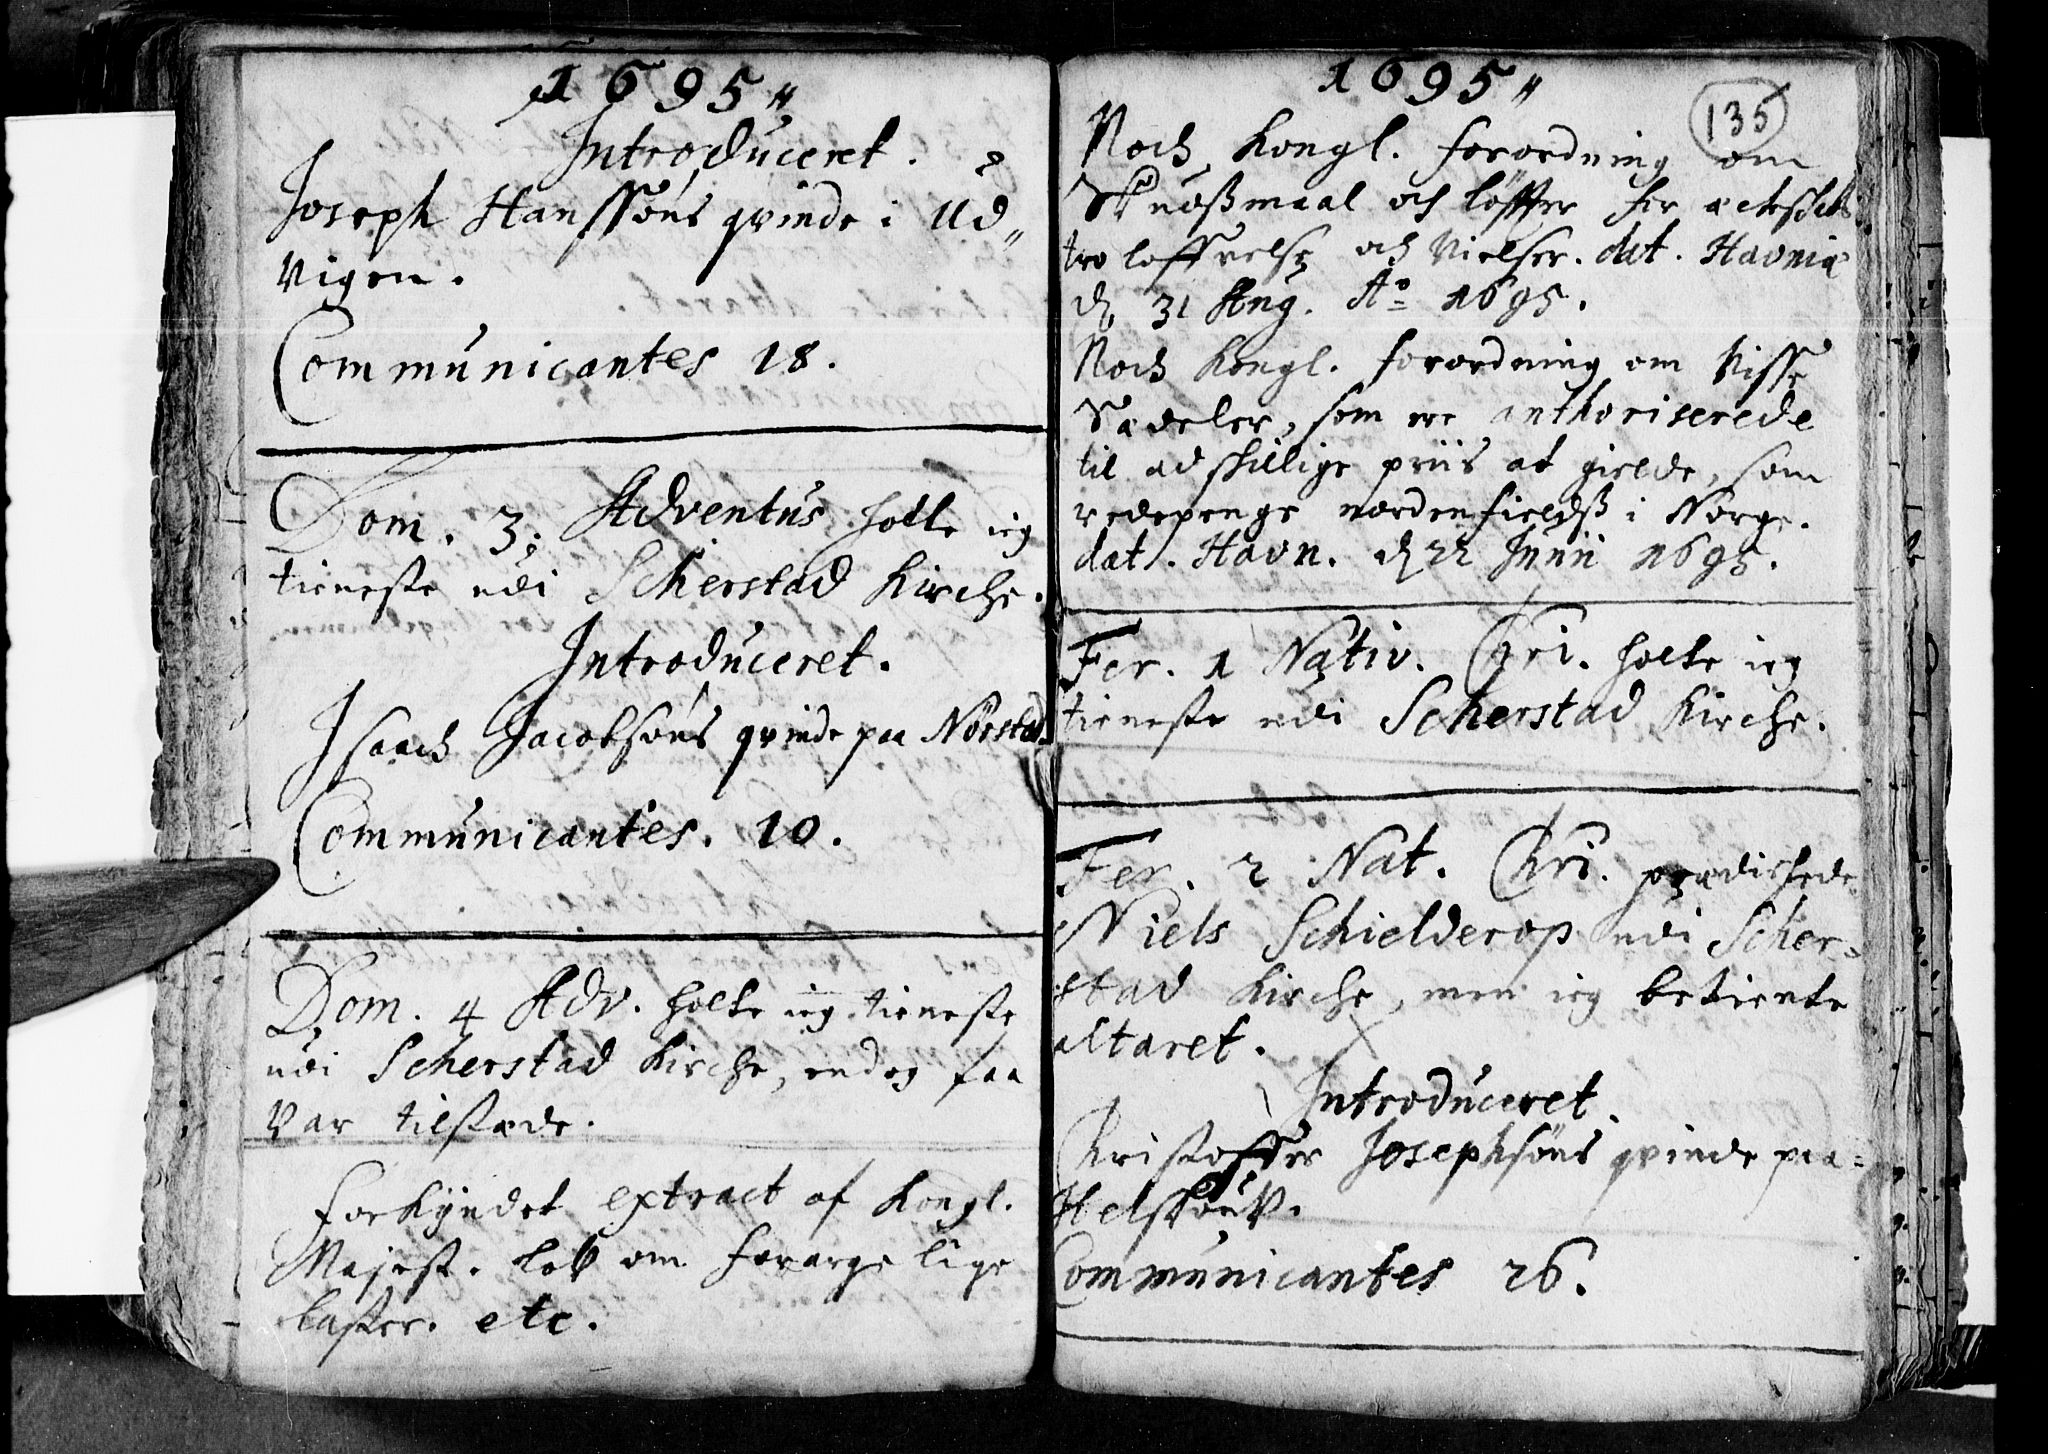 1695„
Introduceret.
Joseph Hanssøns qvinde i Ud„
vigen.
Communicantes 18.
Dom. 3. Adventus holte ieg
tieneste udi Scherstad Kirche.
Introduceret.
Isaach Jacobsøns qvinde paa Nørstad
Communicantes. 10.
Dom. 4 Adv. holte ieg tieneste
udi Scherstad Kirche, endog faa
var tilstæde.
forkyndet extract af Kongl.
Majest. lov om forargelige
laster. etc.
1695„
135
Noch Kongl. forordning om
Skudßmaal och løffter for ægteskabs
troloffvelse och Vielser. dat. Havniæ
d. 31 Aug. Aº 1695.
Noch Kongl. forordning om Visse
Sædeler, som ere authoriserede
til adskillige priis at gielde, som
redepenge nordenfieldß i Norge.
dat. Havn. d 22 Junii 1695.
Fer. 1 Nativ. Chri. holte ieg
tieneste udi Scherstad Kirche.
Fer. 2 Nat. Chri. prædichede
Niels Schielderop udi Scher=
stad Kirche, men ieg betiente
altaret.
Introduceret.
Christoffer Josephsøns qvinde paa
Communicantes 26.